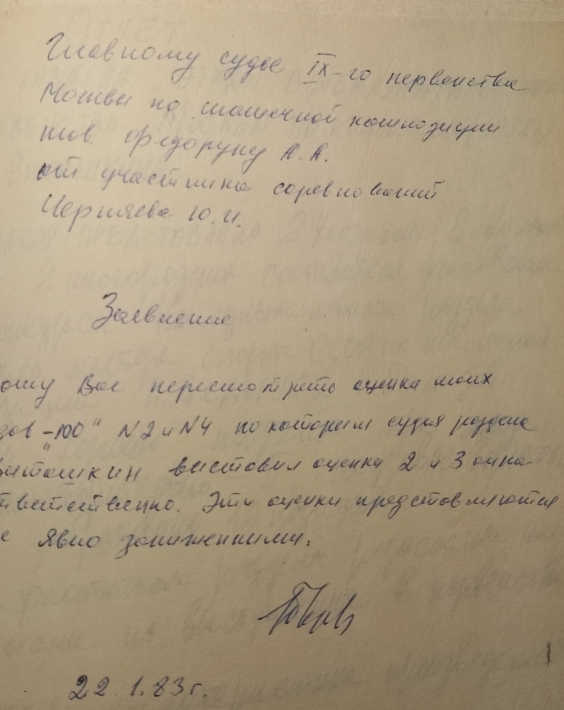 Главному судье IX-го первенства
Москвы по шашечной композиции
тов. Федоруку А.А.
от участника соревнований
Черняева Ю.И.
Заявление
ошу Вас пересмотреть оценки моих
дов "-100" N2 и N4 по которым судья раздела
ошкин выставил оценки 2 и 3 очка
тветственно. Эти оценки представляются
е явно заниженными.
22.1.83 г.